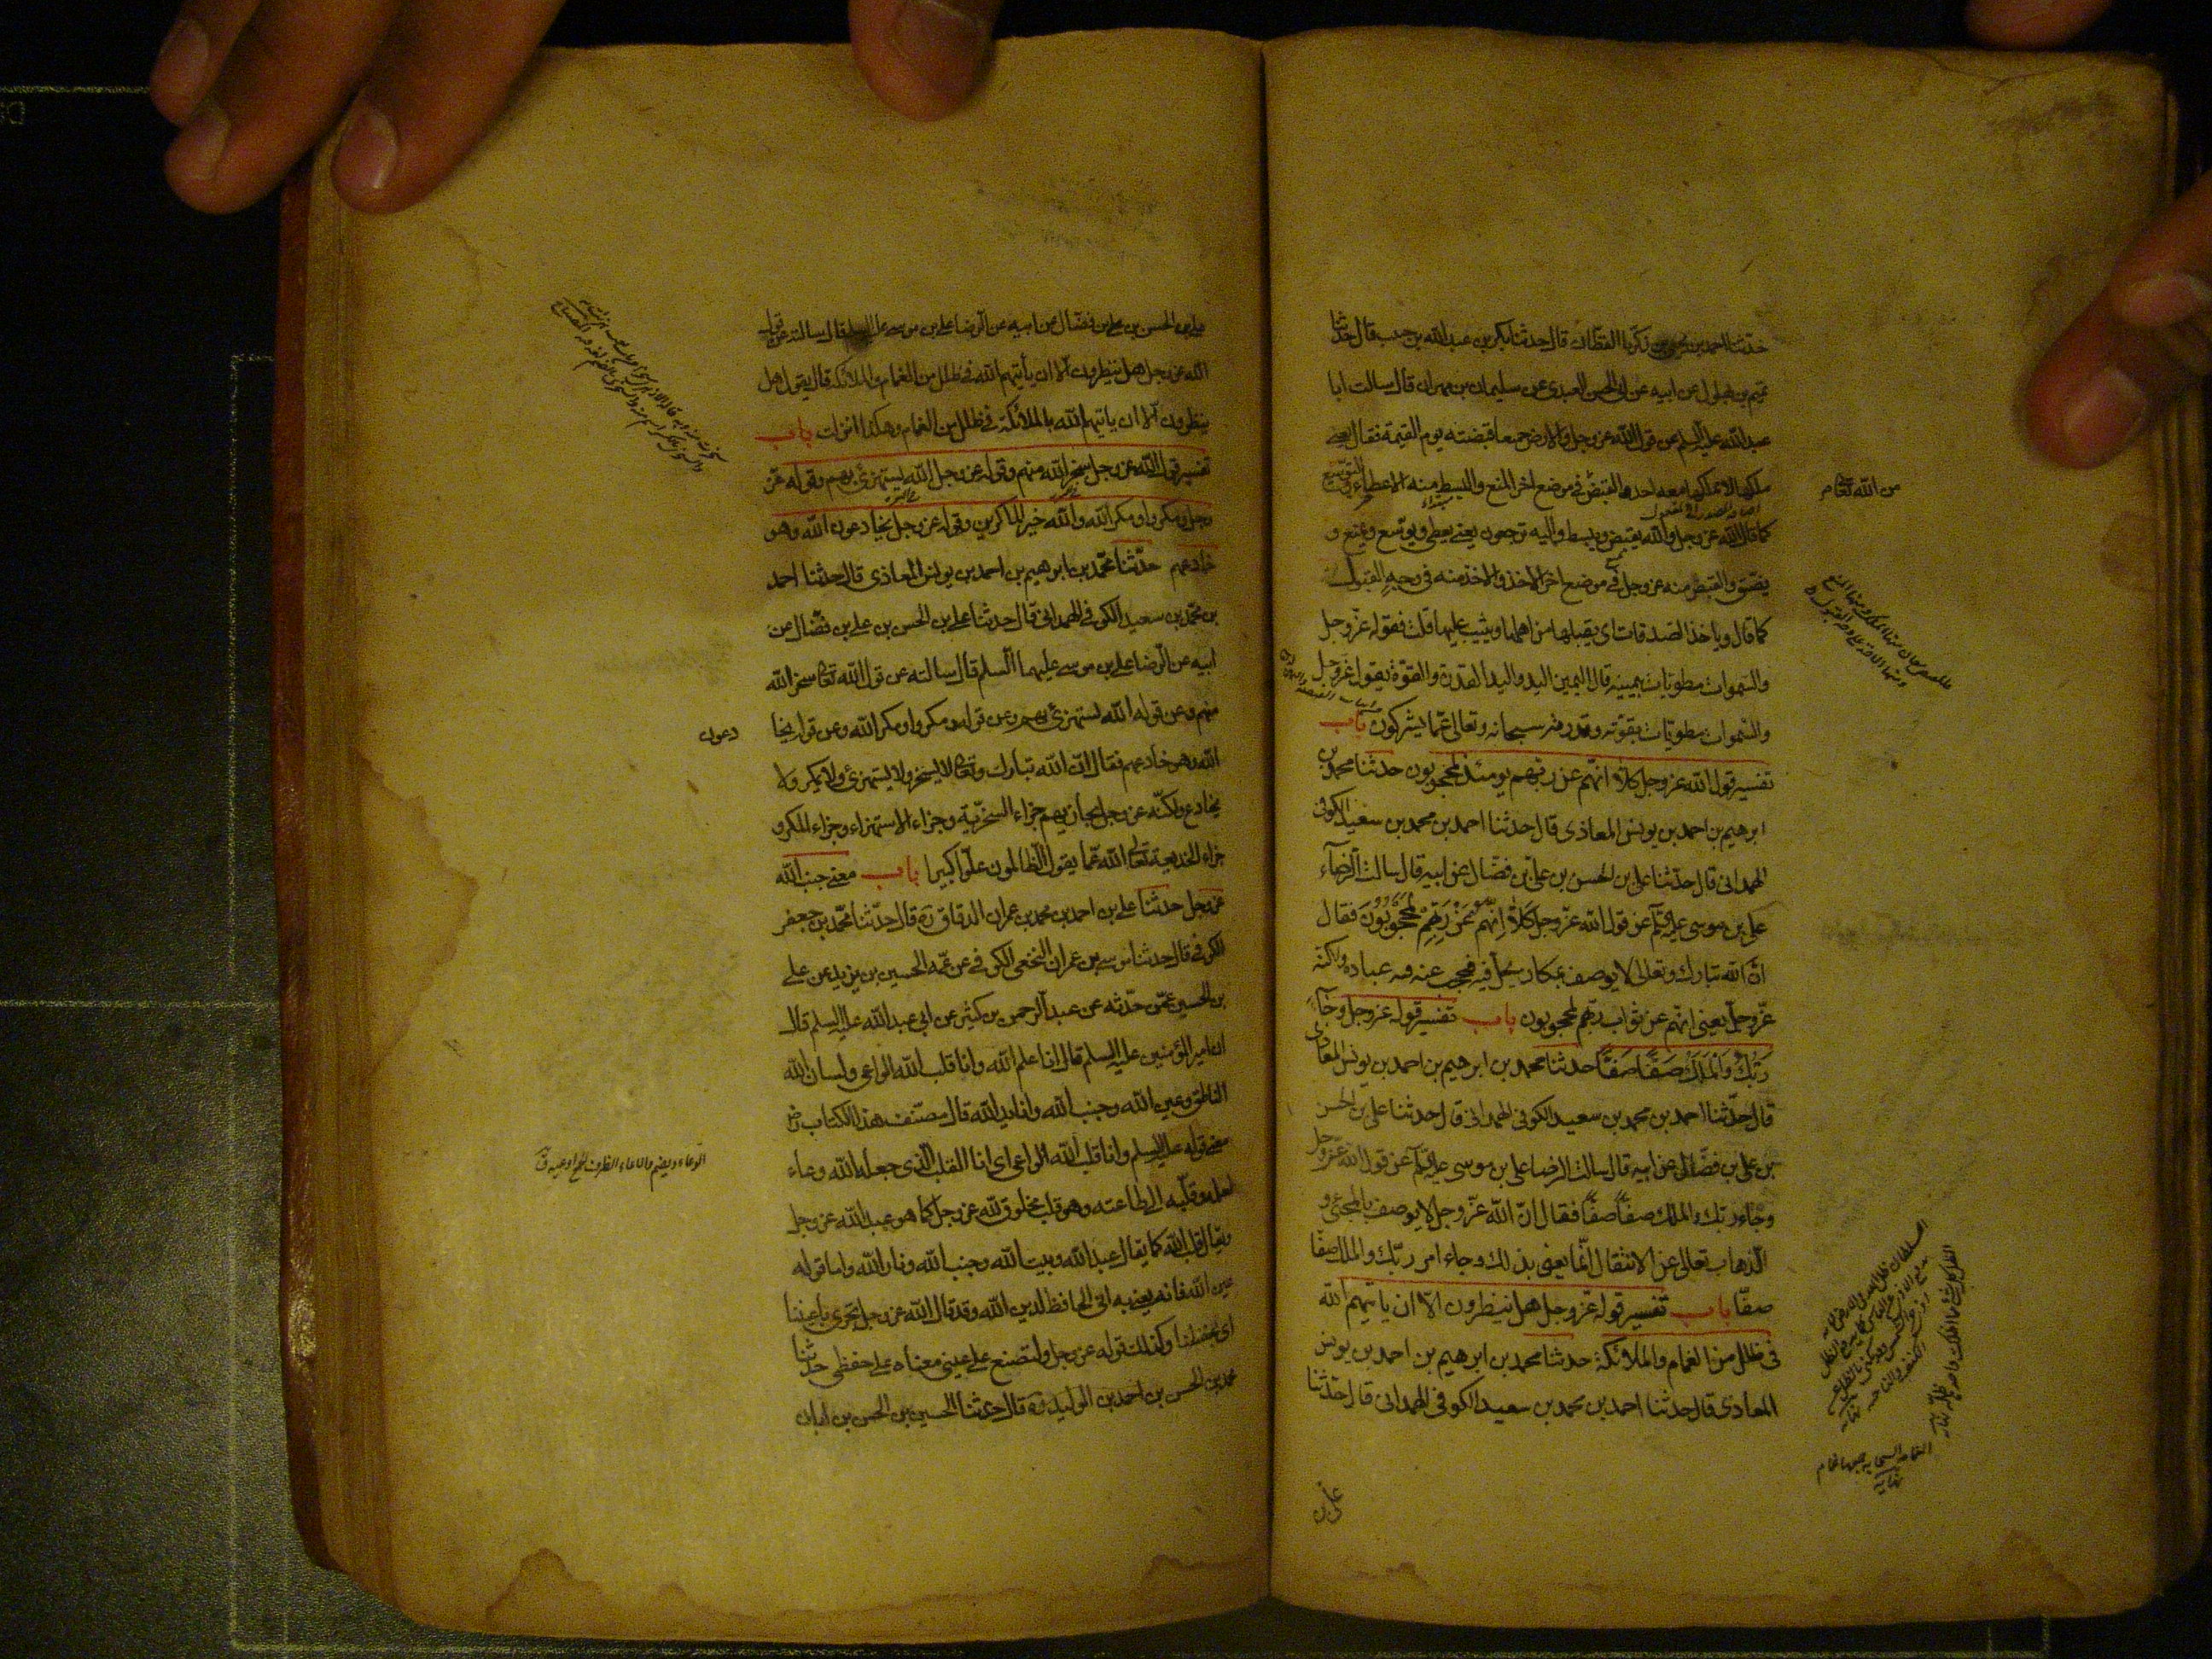 حدثنا احمد بن يحيى بن زكريا القطان قال حدثنا بكر بن عبد الله بن حبيب قال حدثنا
تميم بن بهلول عن ابيه عن ابي الحسن العبدي عن سليمان بن مهران قال سالت ابا
عبد الله عليه السلم عن قول الله عز وجل والارض جميعا قبضته يوم القيمة فقال يعني
ملكه لا يملكها معه احد والقبض في موضع اخر المنع والبسط منه الاعطاء والتوسيع
كما قال الله عز وجل والله يقبض ويبسط واليه ترجعون يعني يعطي ويوسع ويمنع و
يضيق والقبض منه عز وجل في موضع اخر الاخذ والاخذ منه في وجه القبول
كما قال وياخذ الصدقات اي يقبلها من اهلها ويثيب عليها قلت فقوله عز وجل
والسموات مطويات بيمينه قال اليمين اليد واليد القدرة والقوة يقول عز وجل
والسموات مطويات بقوته وقدرته سبحانه وتعالى عما يشركون باب
تفسير قول الله عز وجل كلا انهم عن ربهم يومئذ لمحجوبون حدثنا محمد بن
ابرهيم بن احمد بن يونس المعاذى قال حدثنا احمد بن محمد بن سعيد الكوفى
الهمدانى قال حدثنا على بن الحسن بن على بن فضال عن ابيه قال سالت الرضا
على بن موسى عن قول الله عز وجل كلا انهم عن ربهم لمحجوبون فقال
ان الله تبارك وتعالى لا يوصف بمكان يحل فيه فيحجب عنه فيه عباده ولكنه
عز وجل يعنى انهم عن ثواب ربهم لمحجوبون باب تفسير قوله عز وجل وجاء
ربك والملك صفا صفا حدثنا محمد بن ابرهيم بن احمد بن يونس المعاذى
قال حدثنا احمد بن محمد بن سعيد الكوفى الهمدانى قال حدثنا على بن الحسن
بن على بن فضال عن ابيه قال سالت الرضا على بن موسى عن قول الله عز وجل
وجاء ربك والملك صفا صفا فقال ان الله عز وجل لا يوصف بالمجئ و
الذهاب تعالى عن الانتقال انما يعنى بذلك وجاء امر ربك والملك صفا
صفا باب تفسير قوله عز وجل هل ينظرون الا ان ياتيهم الله
فى ظلل من الغمام والملائكة حدثنا محمد بن ابرهيم بن احمد بن يونس
المعاذى قال حدثنا احمد بن محمد بن سعيد الكوفى الهمدانى قال حدثنا
على بن
على بن الحسن بن على بن فضال عن ابيه عن الرضا على بن موسى قال سالته عن قول
الله عز وجل هل ينظرون الا ان يأتيهم الله في ظلل من الغمام والملائكة قال يقول هل
ينظرون الا ان ياتيهم الله بالملائكة في ظلل من الغمام وهكذا انزلت باب
تفسير قول الله عز وجل سخر الله منهم وقوله عز وجل الله يستهزئ بهم وقوله عز
وجل ومكروا ومكر الله والله خير الماكرين وقوله عز وجل يخادعون الله وهو
خادعهم حدثنا محمد بن ابرهيم بن احمد بن يونس المعاذى قال حدثنا احمد
بن محمد بن سعيد الكوفي الهمداني قال حدثنا على بن الحسن بن على بن فضال عن
ابيه عن الرضا على بن موسى عليهما السلم قال سالته عن قول الله تعالى سخر الله
منهم وعن قوله الله يستهزئ بهم وعن قوله ومكروا ومكر الله وعن قوله يخا
دعون
الله وهو خادعهم فقال ان الله تبارك وتعالى لا يسخر ولا يستهزئ ولا يمكر ولا
يخادع ولكنه عز وجل يجازيهم جزاء السخرية وجزاء الاستهزاء وجزاء المكر و
جزاء الخديعة تعالى الله عما يقول الظالمون علوا كبيرا باب معنى جنب الله
عز وجل حدثنا على بن احمد بن محمد بن عمران الدقاق ره قال حدثنا محمد بن جعفر
الكوفي قال حدثنا موسى بن عمران النخعي الكوفي عن عمه الحسين بن يزيد عن على
بن الحسين عمن حدثه عن عبد الرحمن بن كثير عن ابي عبد الله عليه السلم قال
ان امير المؤمنين عليه السلم قال انا علم الله وانا قلب الله الواعي ولسان الله
الناطق وعين الله وجنب الله وانا يد الله قال مصنف هذا الكتاب رض
معنى قوله عليه السلم وانا قلب الله الواعي اي انا القلب الذى جعله الله وعاء
لعلمه وقلبه الى طاعته وهو قلب مخلوق لله عز وجل كما هو عبد الله عز وجل
ويقال قلب الله كما يقال عبد الله وبيت الله وجنب الله ونار الله واما قوله
عين الله فانه يعنى به انى الحافظ لدين الله وقد قال الله عز وجل تجرى باعيننا
اى بحفظنا وكذلك قوله عز وجل ولتصنع على عينى معناه على حفظى حدثنا
محمد بن الحسن بن احمد بن الوليد ره قال حدثنا الحسين بن الحسن بن ابان